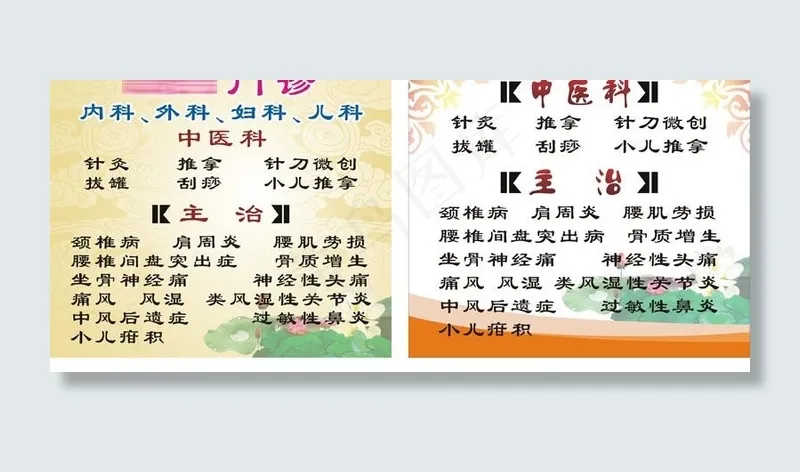 门诊
内科、外科、妇科、儿科
中医科
针灸 推拿 针刀微创
拔罐 刮痧 小儿推拿
【主 治】
颈椎病 肩周炎 腰肌劳损
腰椎间盘突出症 骨质增生
坐骨神经痛 神经性头痛
痛风 风湿 类风湿性关节炎
中风后遗症 过敏性鼻炎
小儿疳积
【中医科】
针灸 推拿 针刀微创
拔罐 刮痧 小儿推拿
【主 治】
颈椎病 肩周炎 腰肌劳损
腰椎间盘突出病 骨质增生
坐骨神经痛 神经性头痛
痛风 风湿 类风湿性关节炎
中风后遗症 过敏性鼻炎
小儿疳积